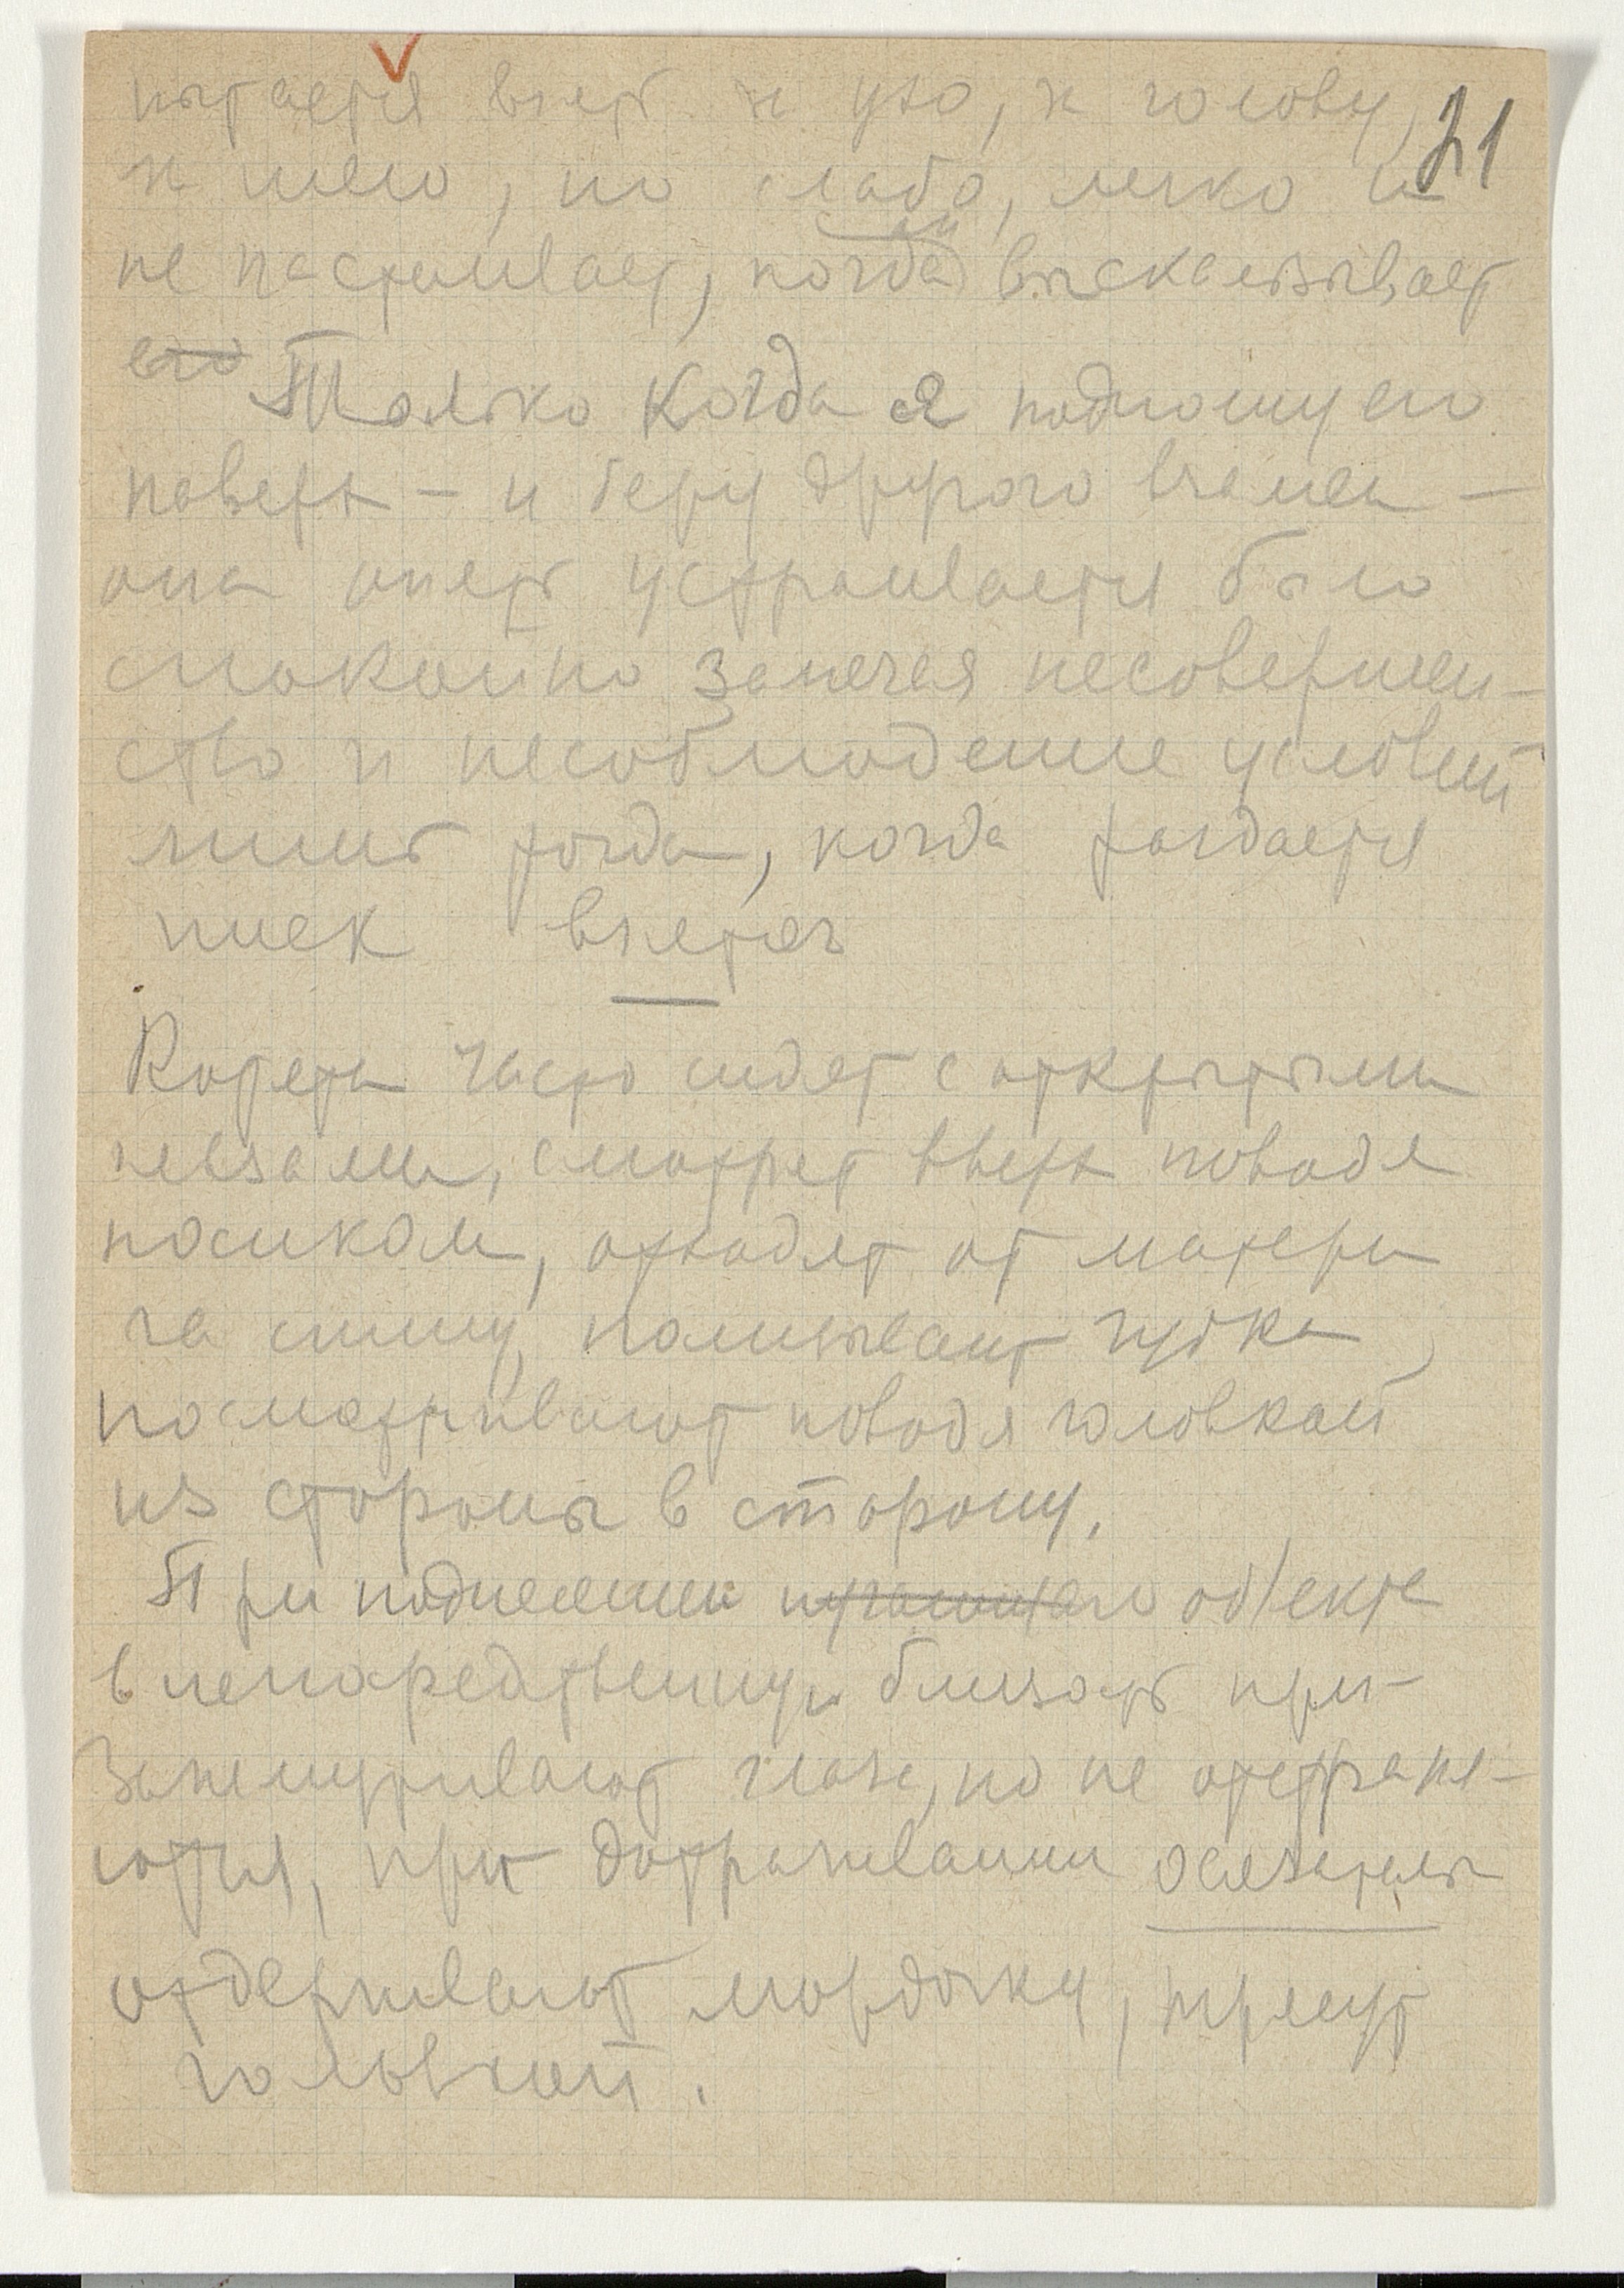 пытается взять за ухо, за голову, 21
за шею, но слабо, легко и
не настаивает, когда выскальзывает
его Только когда я подношу его
наверх – и беру другого взамен –
она опять устраивается было
спокойно замечая несовершен-
ство и несоблюдение условий
лишь тогда, когда раздается
писк взятого
Котята часто сидят с открытыми
глазами, смотрят вверх поводя
носиком, отходят от матери
за спину, полизывают губки,
посматривают поводя головкой
из стороны в сторону.
При поднесении пугающего объекта
в непосредственную близость при-
зажмуривают глаза, но не отстраня-
ются, при дотрагивании осязательн
отдергивают мордочку, трясут
головкой.